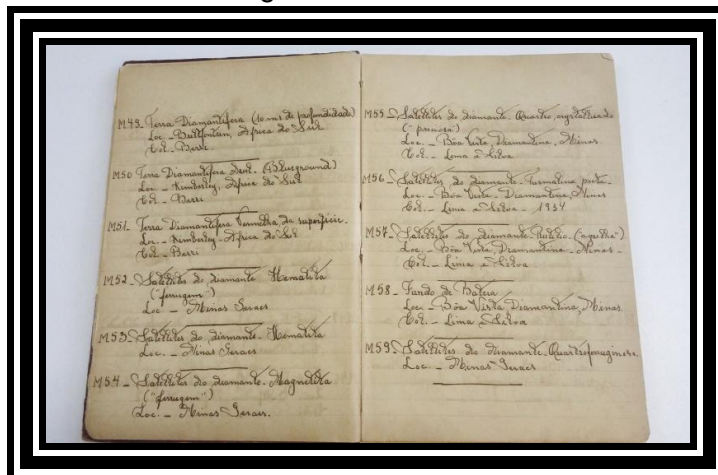 M49_ Terra Diamantifera (10 ms de profundidade)
Loc_ Bultfontein, Africa do Sul
Col_ Berri
M50 Terra Diamantifera Ident. (Blueground)
Loc_ Kimberley, Africa do Sul
Col_ Berri
M51_ Terra Diamantifera Vermelha, da superficie.
Loc._ Kimberley_ Africa do Sul
Col_ Berri
M52_ Satellites do diamante Hematita
("ferrugem")
Loc_ Minas Geraes
M53_ Satellites do diamante_ Hematita
Loc._ Minas Geraes
M54_ Satellites do diamante_ Magnetita
("ferrugem")
Loc._ Minas Geraes.
M55_ Satellites do diamante_ Quartzo crystallizado
Loc._ Bôa Vista, Diamantina_ Minas
Col._ Lima e Silva
M56_ Satellites do diamante_ Turmalina preta_
Loc._ Bôa Vista_ Diamantina, Minas
Col._ Lima e Silva_ 1934
M57_ Satellites do diamante Rutilo_ ("agulha")
Loc._ Bôa Vista Diamantina_ Minas_
Col._ Lima e Silva
M58_ Fundo de Bateia
Loc_ Bôa Vista Diamantina, Minas
Col._ Lima e Silva
M59_ Satellites do diamante_
Loc._ Minas Geraes